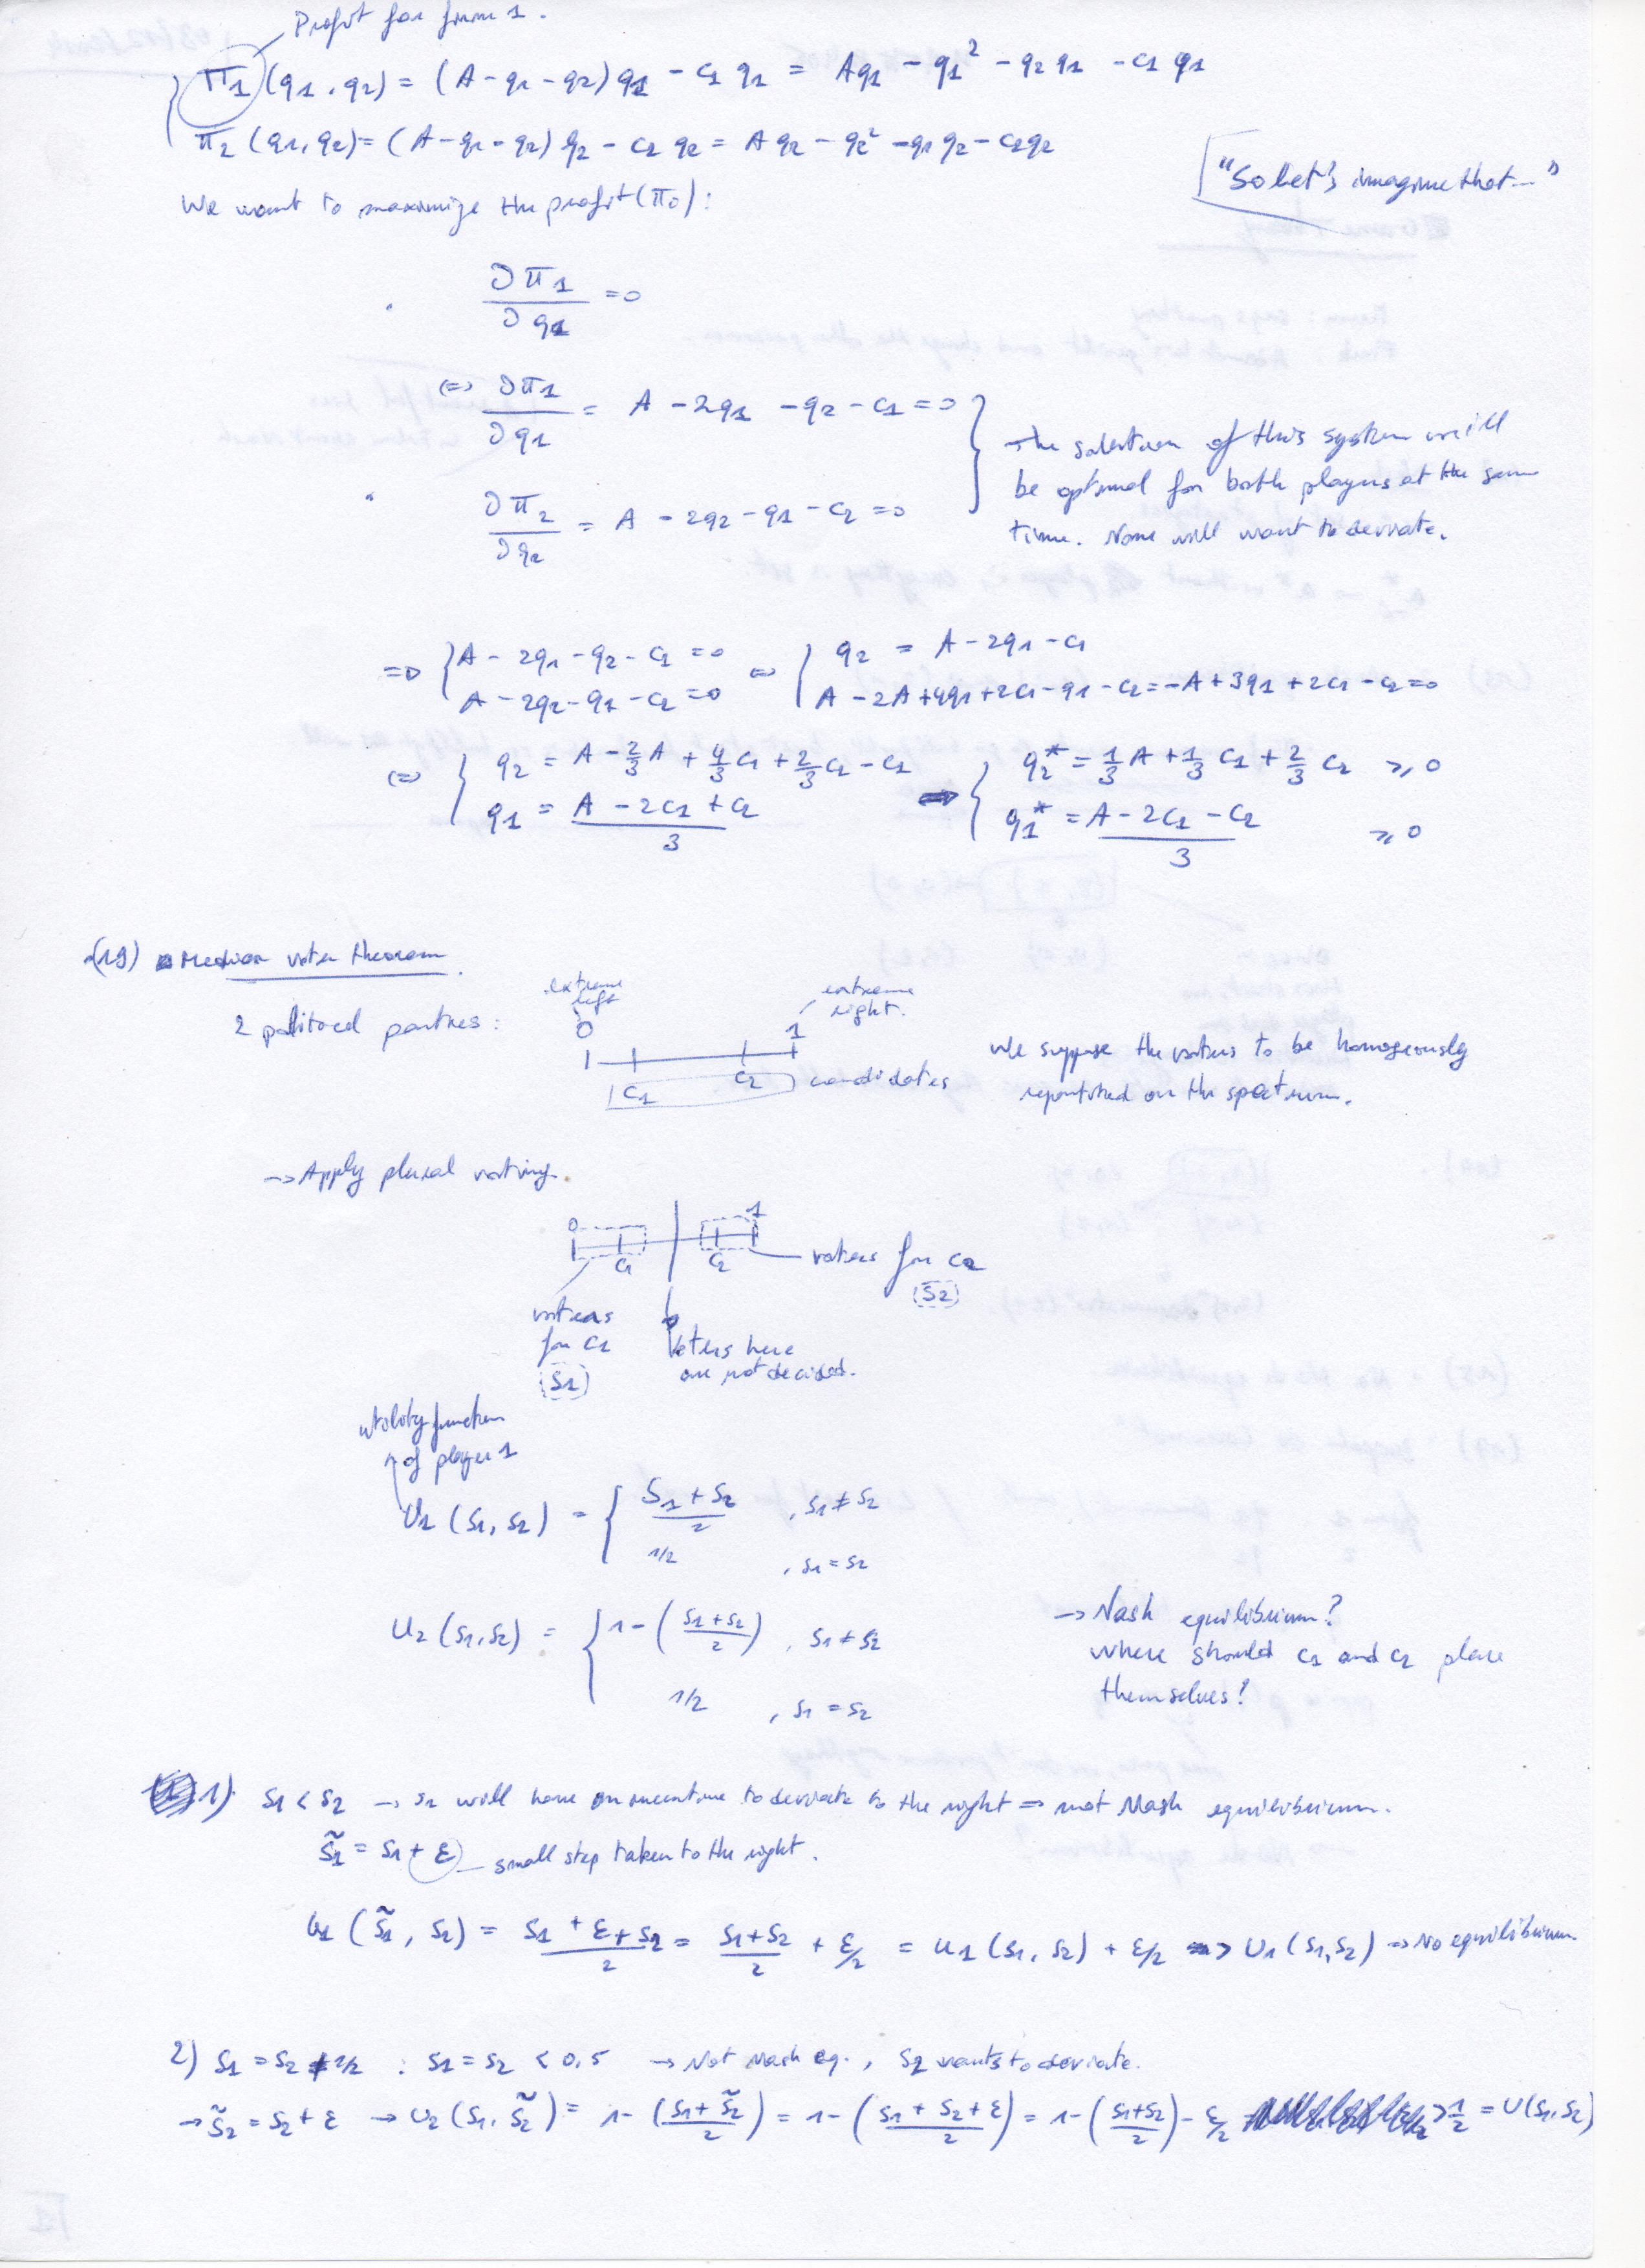 Profit for firm 1.
π1 (q1, q2) = (A - q1 - q2) q1 - c1 q1 = Aq1 - q1² - q2 q1 - c1 q1
π2 (q1, q2) = (A - q1 - q2) q2 - c2 q2 = A q2 - q2² - q1 q2 - c2 q2
"So let's imagine that..."
We want to maximize the profit (π0):
∂π1/∂q1 = 0
(=) ∂π1/∂q1 = A - 2q1 - q2 - c1 = 0
∂π2/∂q2 = A - 2q2 - q1 - c2 = 0
The solution of this system will
be optimal for both players at the same
time. None will want to deviate.
=> { A - 2q1 - q2 - c1 = 0 (=) { q2 = A - 2q1 - c1
A - 2q2 - q1 - c2 = 0 A - 2A + 4q1 + 2c1 - q1 - c2 = -A + 3q1 + 2c1 - c2 = 0
(=) { q2 = A - 2/3 A + 4/3 c1 + 2/3 c2 - c1 => { q2* = 1/3 A + 1/3 c1 + 2/3 c2 ≥ 0
q1 = (A - 2c1 + c2)/3 q1* = (A - 2c1 - c2)/3 ≥ 0
(19) Median voter theorem.
extreme left
extreme right.
2 political parties:
0 1
c1 c2 candidates
We suppose the voters to be homogeously
repartited on the spectrum.
-> Apply plural voting.
0 1
c1 c2
voters for c2
(S2)
voters
for c1
(S1)
Voters here
are not decided.
utility function
of player 1
U1 (s1, s2) = { (s1 + s2)/2 , s1 ≠ s2
1/2 , s1 = s2
U2 (s1, s2) = { 1 - ((s1 + s2)/2) , s1 ≠ s2
1/2 , s1 = s2
-> Nash equilibrium?
Where should c1 and c2 place
themselves?
1) s1 < s2 -> s1 will have an incentive to deviate to the right => not Nash equilibrium.
s̃1 = s1 + ε small step taken to the right.
U1 (s̃1, s2) = (s1 + ε + s2)/2 = (s1 + s2)/2 + ε/2 = U1 (s1, s2) + ε/2 > U1 (s1, s2) -> No equilibrium.
2) s1 = s2 ≠ 1/2 : s1 = s2 < 0,5 -> Not Nash eq., s2 wants to deviate.
-> s̃2 = s2 + ε -> U2 (s1, s̃2) = 1 - ((s1 + s̃2)/2) = 1 - ((s1 + s2 + ε)/2) = 1 - ((s1+s2)/2) - ε/2 > 1/2 = U(s1, s2)